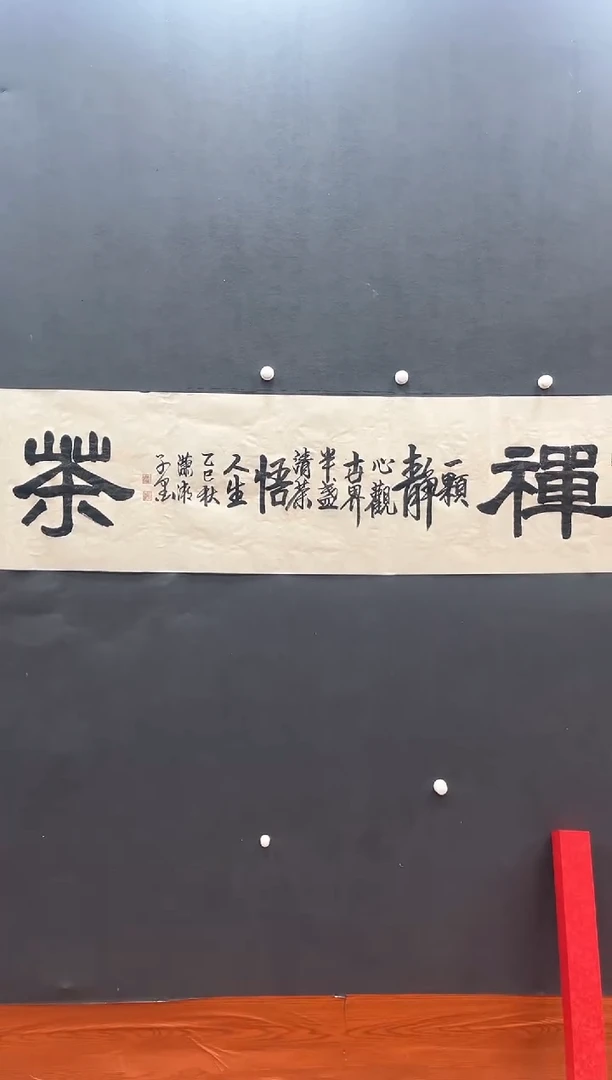 禪
一顆
靜
心觀
世界
半盞
清茶
悟
人生
乙巳秋
瀟湘
子
茶